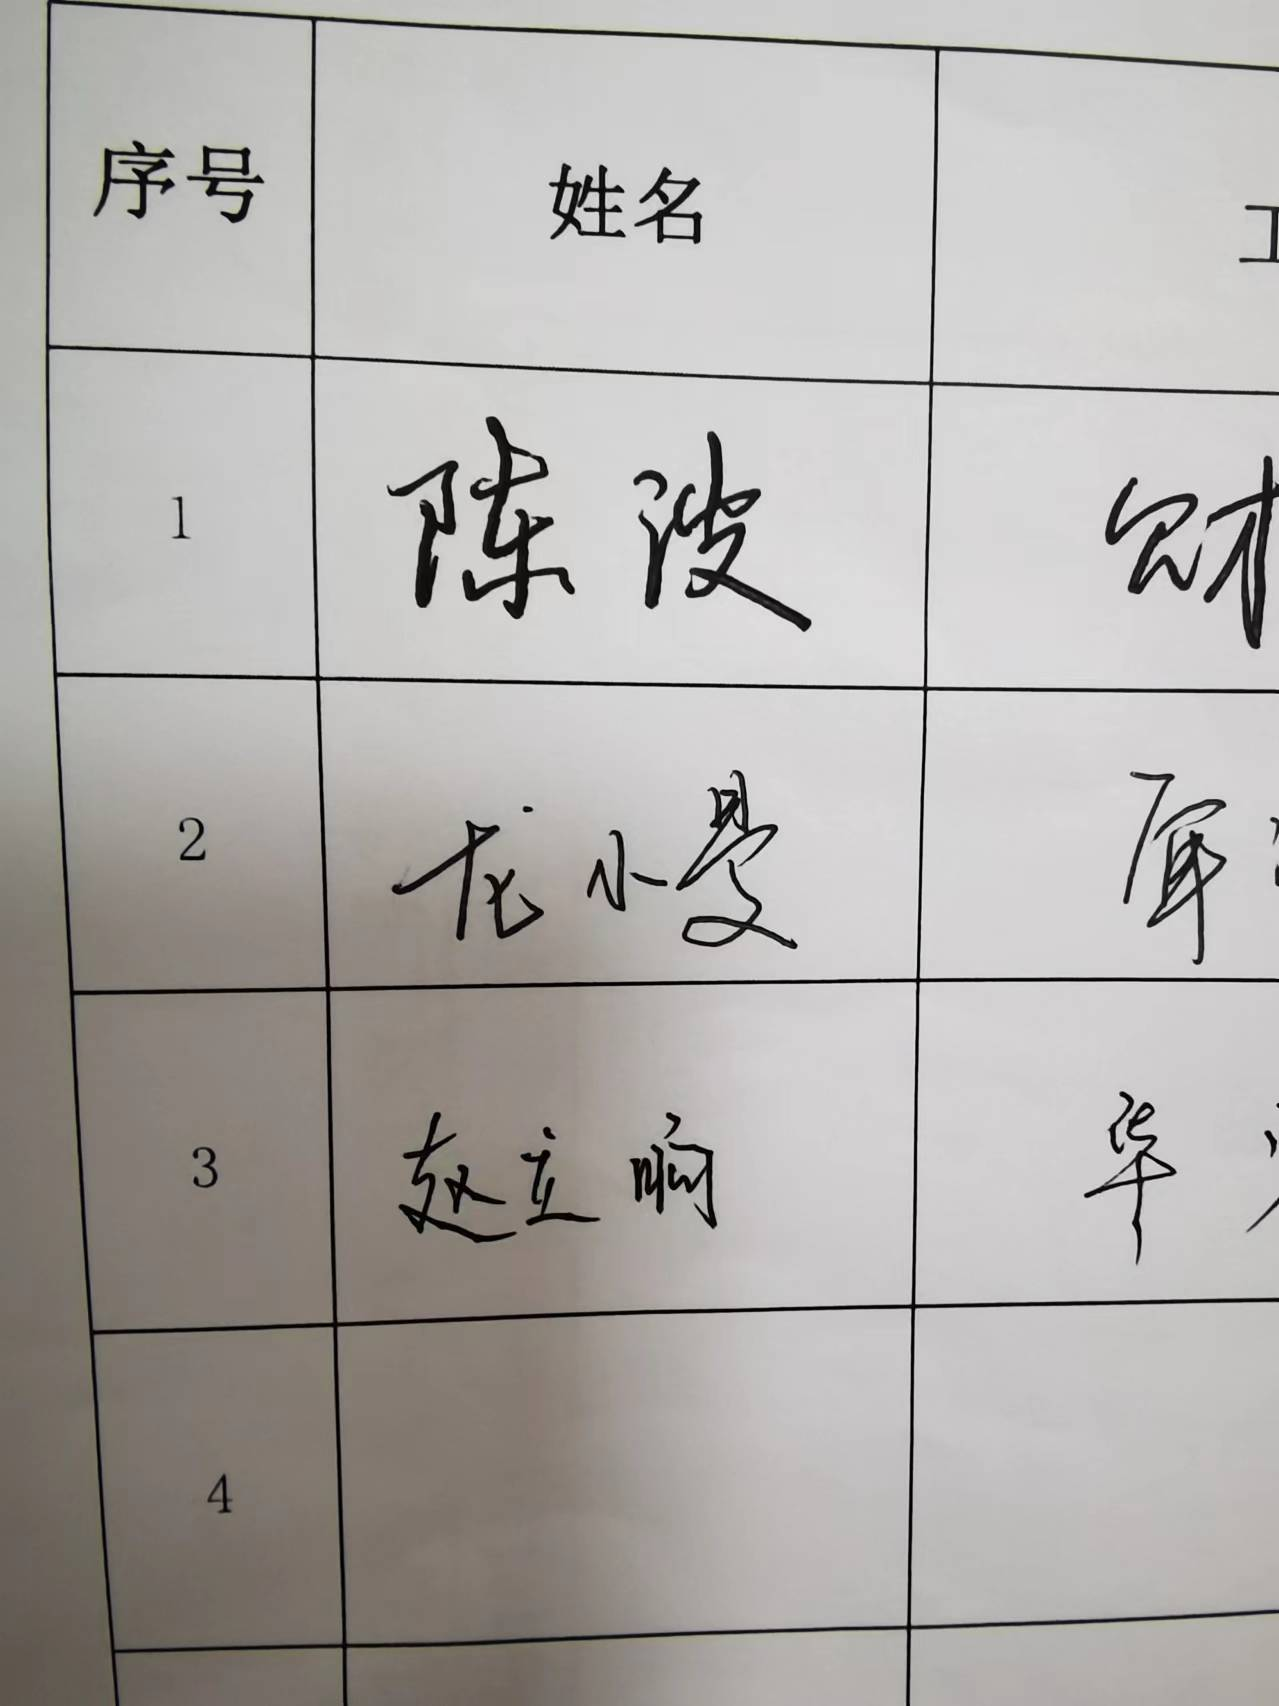 序号 姓名 工
1 陈波 财
2 龙小曼
3 赵立响 华
4